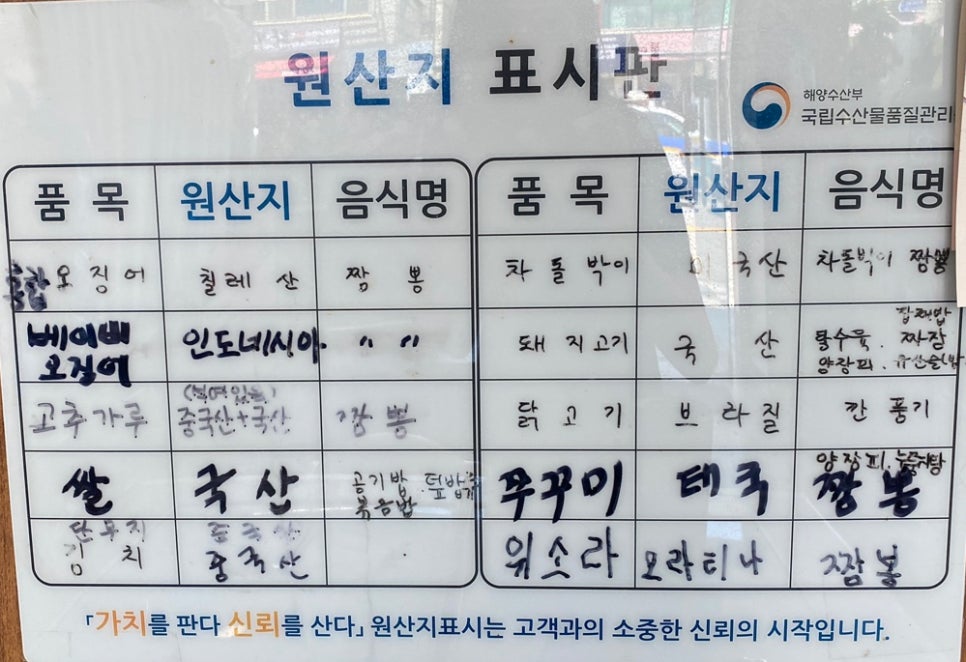 원산지 표시판
해양수산부
국립수산물품질관리
품 목 원산지 음식명 품 목 원산지 음식명
오징어 칠레산 짬뽕 차돌박이 미국산 차돌박이 짬뽕
베이비 오징어 인도네시아 〃 〃 돼지고기 국산 탕수육. 짜장 잡채밥 양장피.
고추가루 중국산+국산 짬뽕 닭고기 브라질 깐풍기
쌀 국산 공기밥. 덮밥 볶음밥 쭈꾸미 태국 양장피. 짬뽕
단무지 중국산
김치 중국산 위소라 모라티나 짬뽕
「가치를 판다 신뢰를 산다」 원산지표시는 고객과의 소중한 신뢰의 시작입니다.